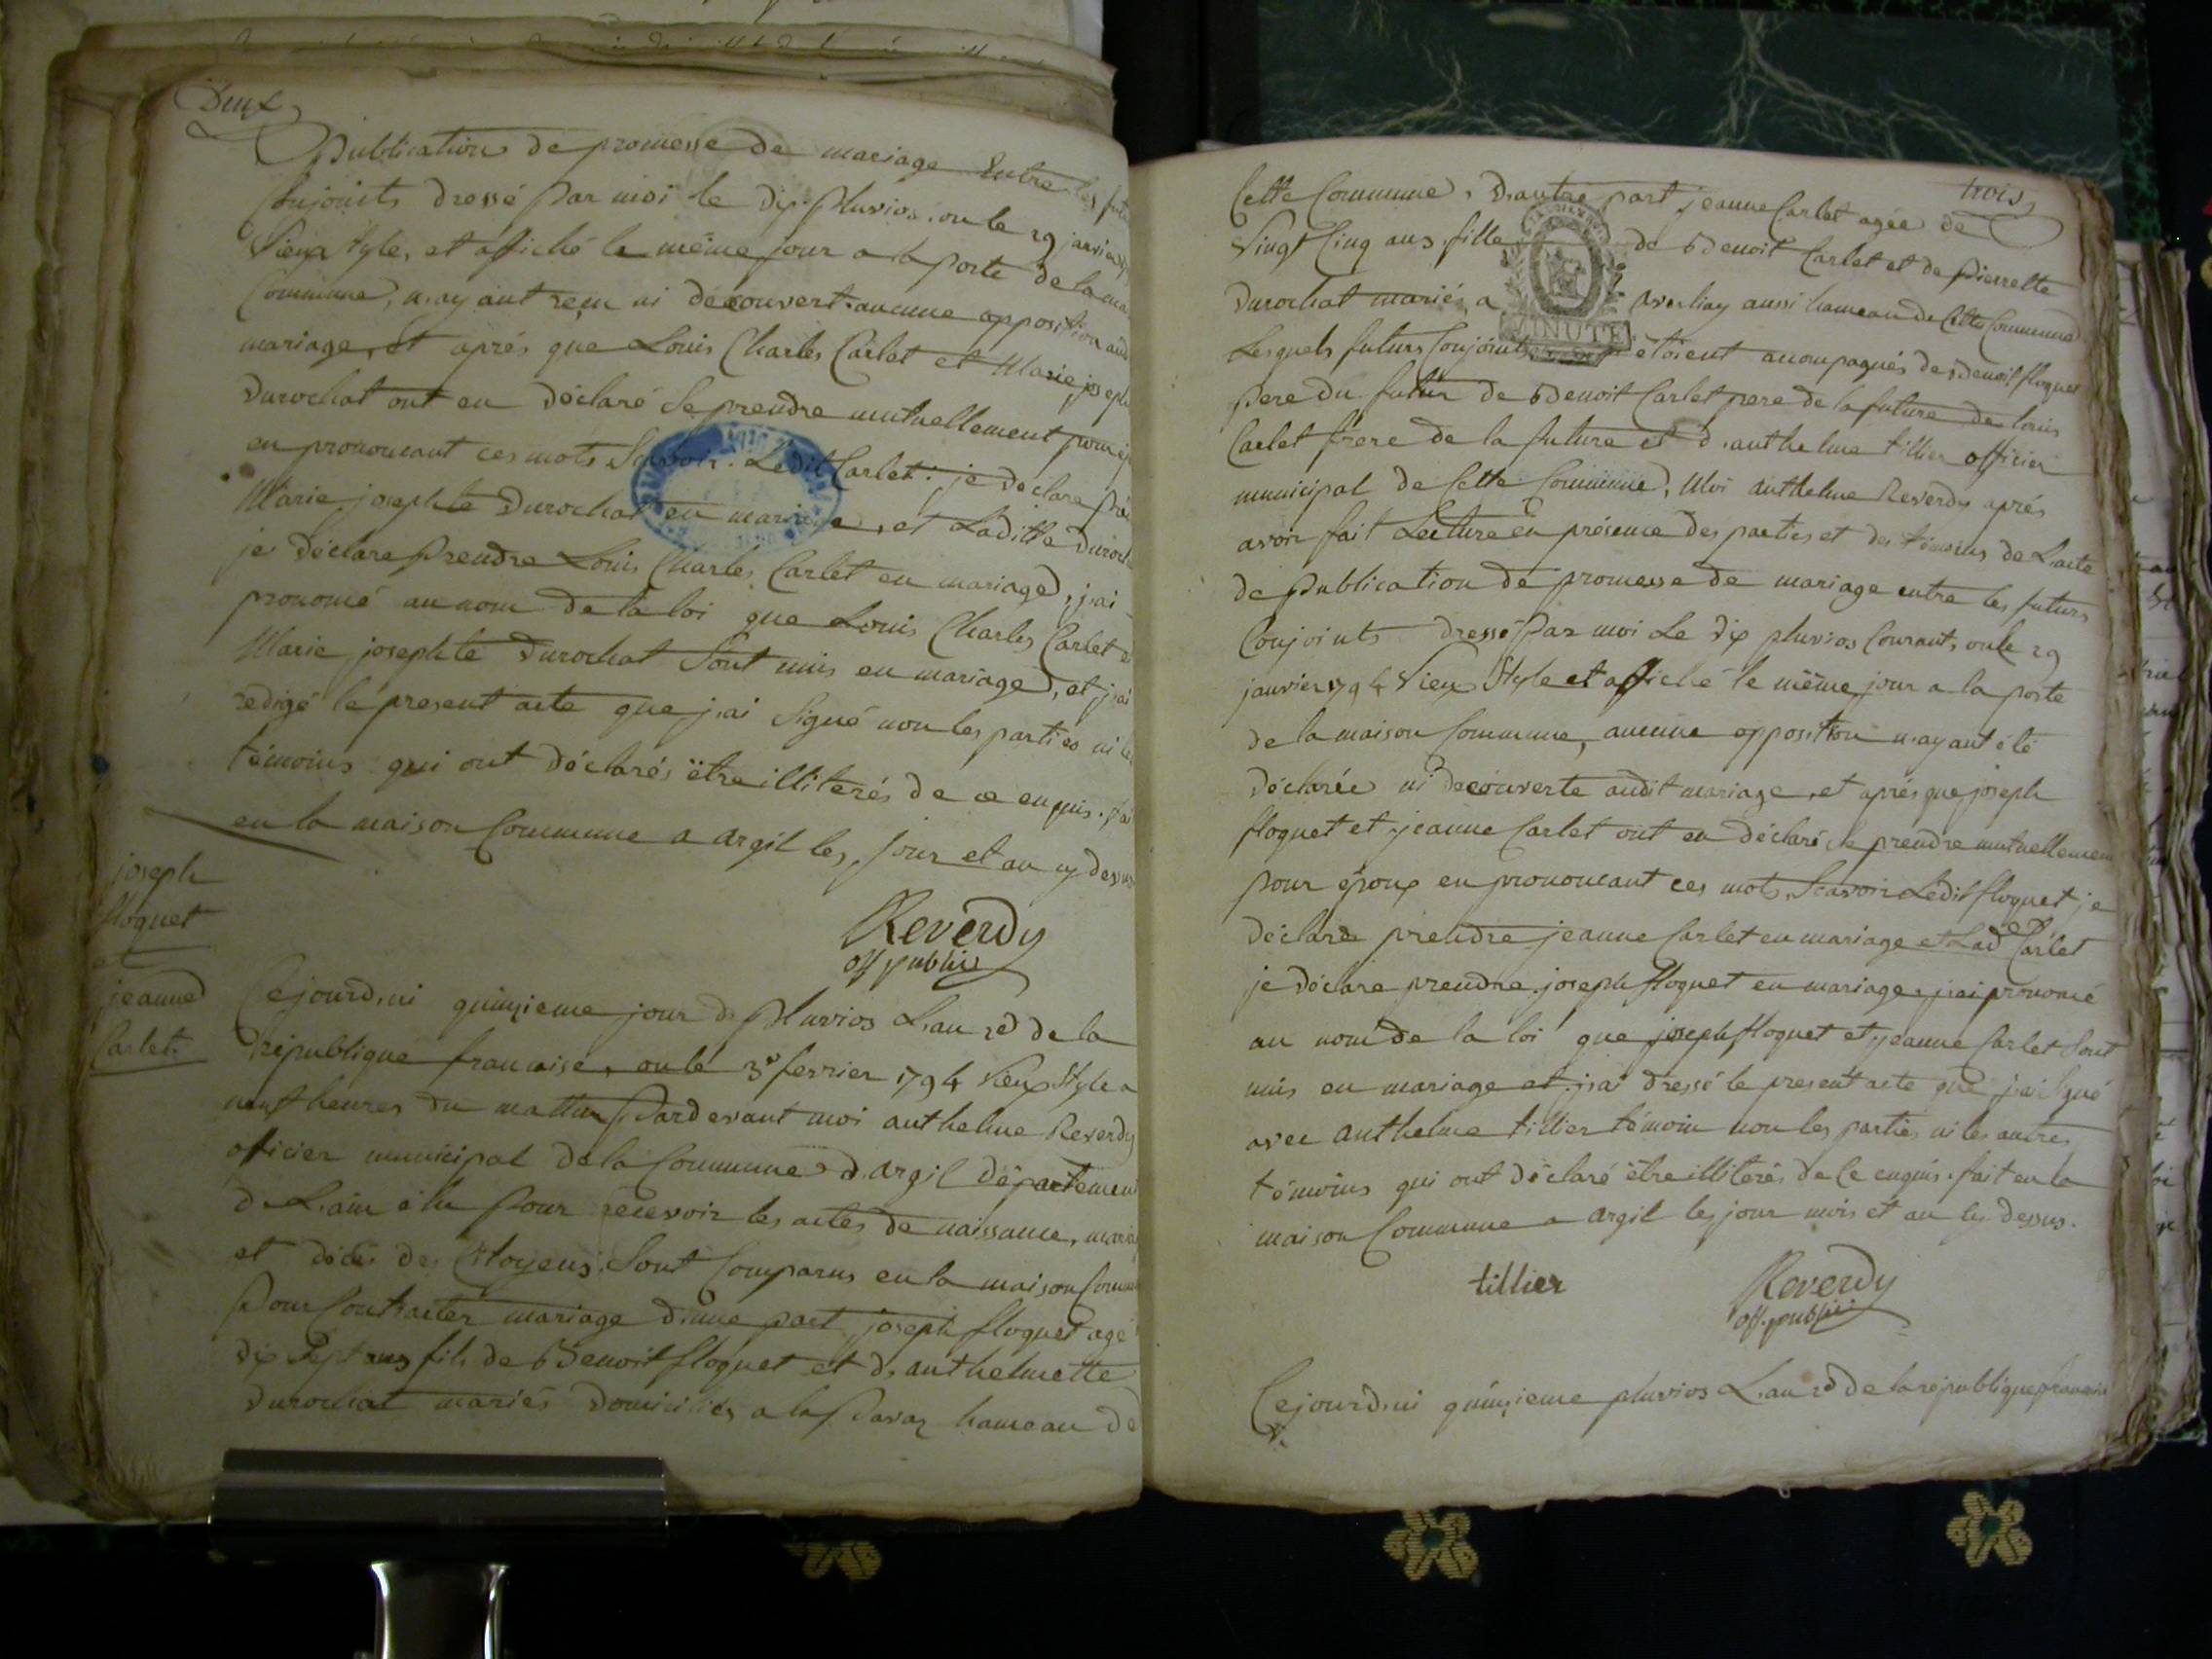 Deux
Publication de promesse de mariage entre les
Conjoints dressé par moi le dix pluvios, ou le 29
vieux style, et affiché le même jour a la porte de la
Commune, n'ayant reçu ni découvert aucune opposition
mariage, et aprés que Louis Charles Carlet et Marie joseph
Durochat ont eu déclaré se prendre mutuellement pour
en prononcant ces mots Scavoir. Ledit Carlet: je declare
Marie josephte Durochat en mariage, et Laditte
je déclare prendre Louis Charles Carlet en mariage, j'ai
prononcé au nom de la loi que Louis Charles Carlet
Marie josephte Durochat sont unis en mariage, et j'ai
redigé le present acte que j'ai signé non les parties ni
témoins qui ont déclarés être illiterés de ce enquis.
en la maison Commune a argil les jour et an
Reverdy
off public
joseph
floquet
et
jeanne
Carlet.
Cejourd'ui quinzieme jour de pluvios L'an 2d de la
république francaise, ou le 3e fevrier 1794 vieux Style a
neuf heures du mattin Pardevant moi anthelme Reverdy
officier municipal de la Commune d'argil département
de L'ain élu pour recevoir les actes de naissance,
et décès des Citoyens, Sont Comparus en la maison
Pour Contracter mariage d'une part, joseph floquet agé
dix sept ans fils de Benoit floquet et d'anthelmette
Durochat mariés domiciliés a la hameau de
trois
Cette Commune, d'autre part jeanne Carlet agée de
vingt Cinq ans, fille de Benoit Carlet et de Pierrette
Durochat mariés, a aussi hameau de Cette Commune
Lesquels futurs Conjoints étoient acompagnés de Benoit floquet
Pere du futur de Benoit Carlet pere de la future de louis
Carlet frere de la future et d'anthelme tillier officier
municipal de Cette Commune, Moi anthelme Reverdy aprés
avoir fait Lecture en présence des parties et des témoins de L'acte
de publication de promesse de mariage entre les futurs
Conjoints dressé par moi Le dix pluvios Courant, ou le 29
janvier 1794 vieux Style et affiché le même jour a la porte
de la maison Commune, aucune opposition n'ayant été
déclarée ni découverte audit mariage, et aprés que joseph
floquet et jeanne Carlet ont eu déclaré se prendre mutuellement
pour époux en prononcant ces mots, Scavoir Ledit floquet je
déclare prendre jeanne Carlet en mariage et Lade Carlet
je déclare prendre joseph floquet en mariage, j'ai prononcé
au nom de la loi que joseph floquet et jeanne Carlet Sont
unis en mariage et j'ai dressé le present acte que j'ai signé
avec anthelme tillier témoin non les parties ni les autres
témoins qui ont déclaré être illiterés de Ce enquis. fait en la
maison Commune a argil les jour mois et an dessus.
tillier
Reverdy
off. public
Cejourd'ui quinzieme pluvios L'an 2d de la république
MINUTE